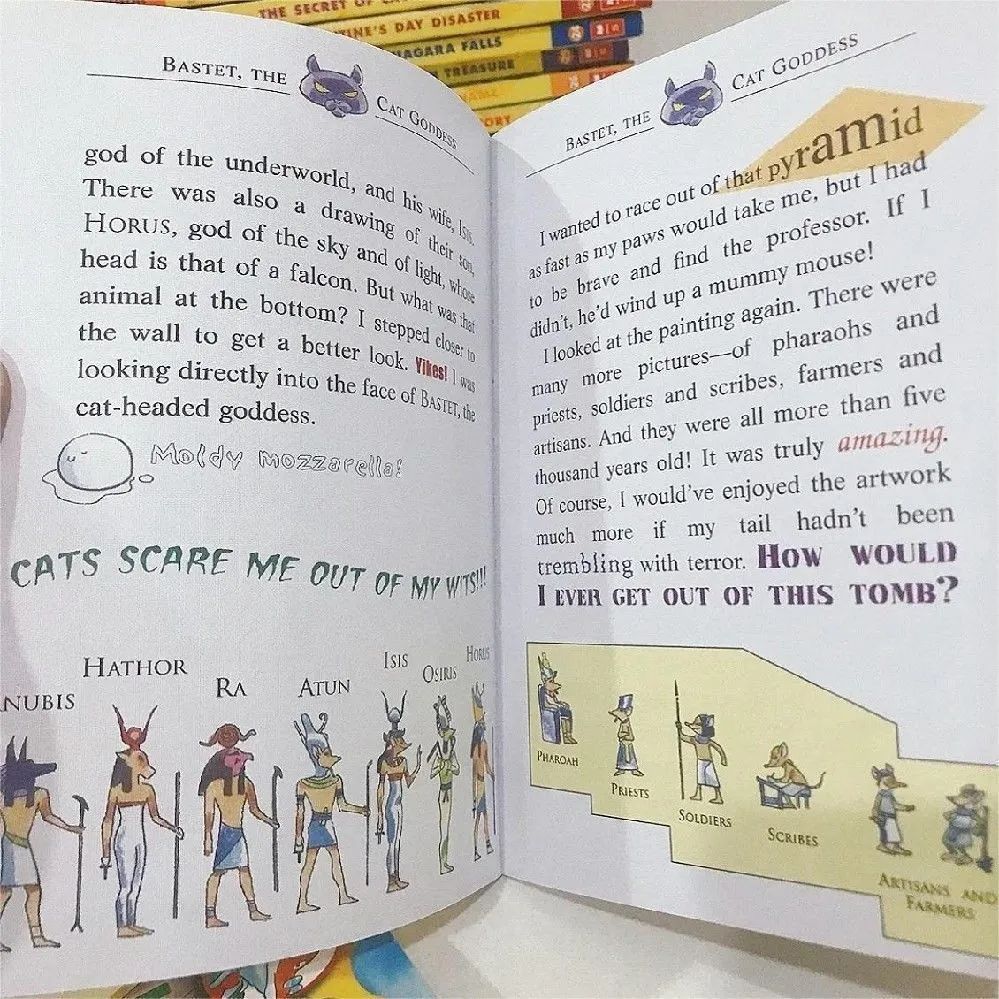 THE SECRET OF
TINE'S DAY DISASTER
NIAGARA FALLS
TREASURE
ORY
BASTET, THE CAT GODDESS
god of the underworld, and his wife, ISIS.
There was also a drawing of their son,
HORUS, god of the sky and of light, whose
head is that of a falcon. But what was that
animal at the bottom? I stepped closer to
the wall to get a better look. Yikes! I was
looking directly into the face of BASTET, the
cat-headed goddess.
Moldy mozzarella!
CATS SCARE ME OUT OF MY WITS!!!
NUBIS
HATHOR
RA
ATUN
ISIS
OSIRIS
HORUS
BASTET, THE CAT GODDESS
I wanted to race out of that pyramid
as fast as my paws would take me, but I had
to be brave and find the professor. If I
didn't, he'd wind up a mummy mouse!
I looked at the painting again. There were
many more pictures—of pharaohs and
priests, soldiers and scribes, farmers and
artisans. And they were all more than five
thousand years old! It was truly amazing.
Of course, I would've enjoyed the artwork
much more if my tail hadn't been
trembling with terror. HOW WOULD
I EVER GET OUT OF THIS TOMB?
PHAROAH
PRIESTS
SOLDIERS
SCRIBES
ARTISANS AND
FARMERS